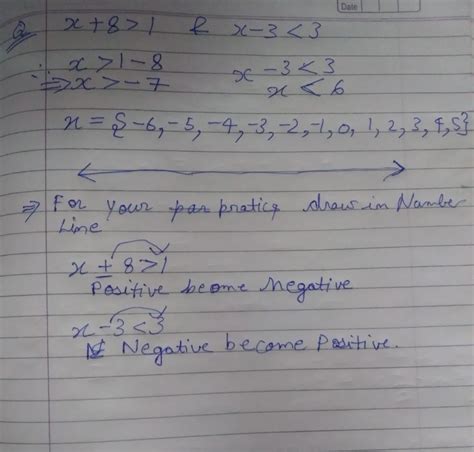 Date
Q x + 8 > 1 & x - 3 < 3
∴ x > 1 - 8 x - 3 < 3
⇒ x > - 7 x < 6
x = {-6, -5, -4, -3, -2, -1, 0, 1, 2, 3, 4, 5}
⇒ For your pratice draw in Numbe
Line
x + 8 > 1
Positive become Negative
x - 3 < 3
Negative become Positive.